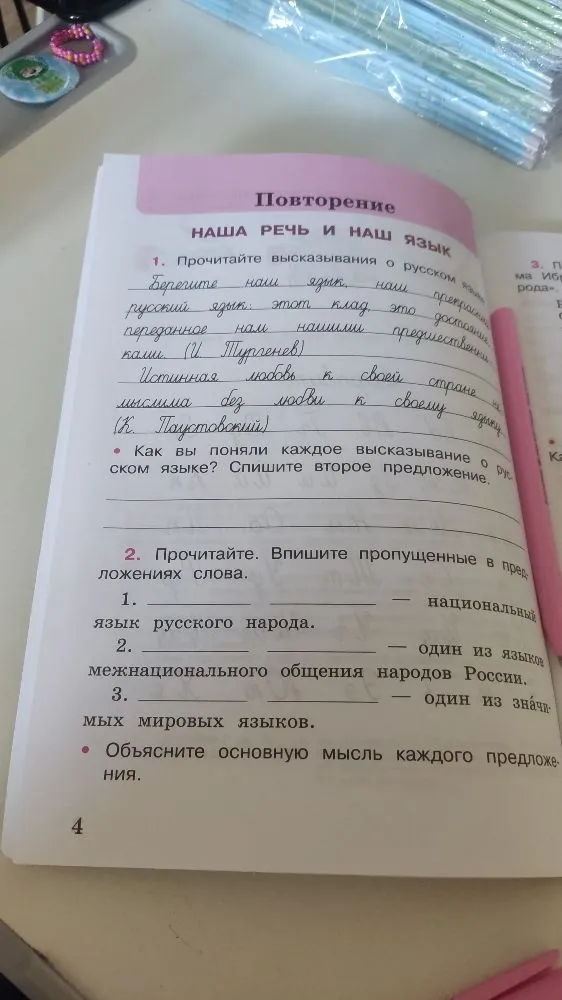 Повторение
НАША РЕЧЬ И НАШ ЯЗЫК
1. Прочитайте высказывания о русском языке.
Берегите наш язык, наш прекрасный
русский язык: этот клад, это достояние,
переданное нам нашими предшественни-
ками. (И. Тургенев)
Истинная любовь к своей стране не
мыслима без любви к своему языку.
(К. Паустовский)
• Как вы поняли каждое высказывание о рус-
ском языке? Спишите второе предложение.
2. Прочитайте. Впишите пропущенные в пред-
ложениях слова.
1. — национальный
язык русского народа.
2. — один из языков
межнационального общения народов России.
3. — один из зна́чи-
мых мировых языков.
• Объясните основную мысль каждого предложе-
ния.
4
3.
рода».